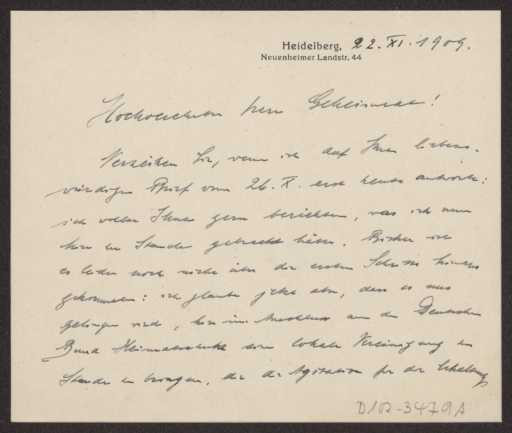 Heidelberg, 22. XI. 1909.
Neuenheimer Landstr. 44
Hochverehrter Herr Geheimrat!
Verzeihen Sie, wenn ich auf Ihren liebens-
würdigen Brief vom 26. X. erst heute antworte:
ich wollte Ihnen gern berichten, was ich nun
hier zu Stande gebracht hätte. Bisher bin
es leider noch nicht über die ersten Schritte hinaus
gekommen: ich glaube jetzt aber, dass es uns
gelingen wird, hier im Anschluss an den Deutschen
Bund Heimatschutz eine lokale Vereinigung zu
Stande zu bringen, die die Agitation für die Erhaltung
D102-3479A